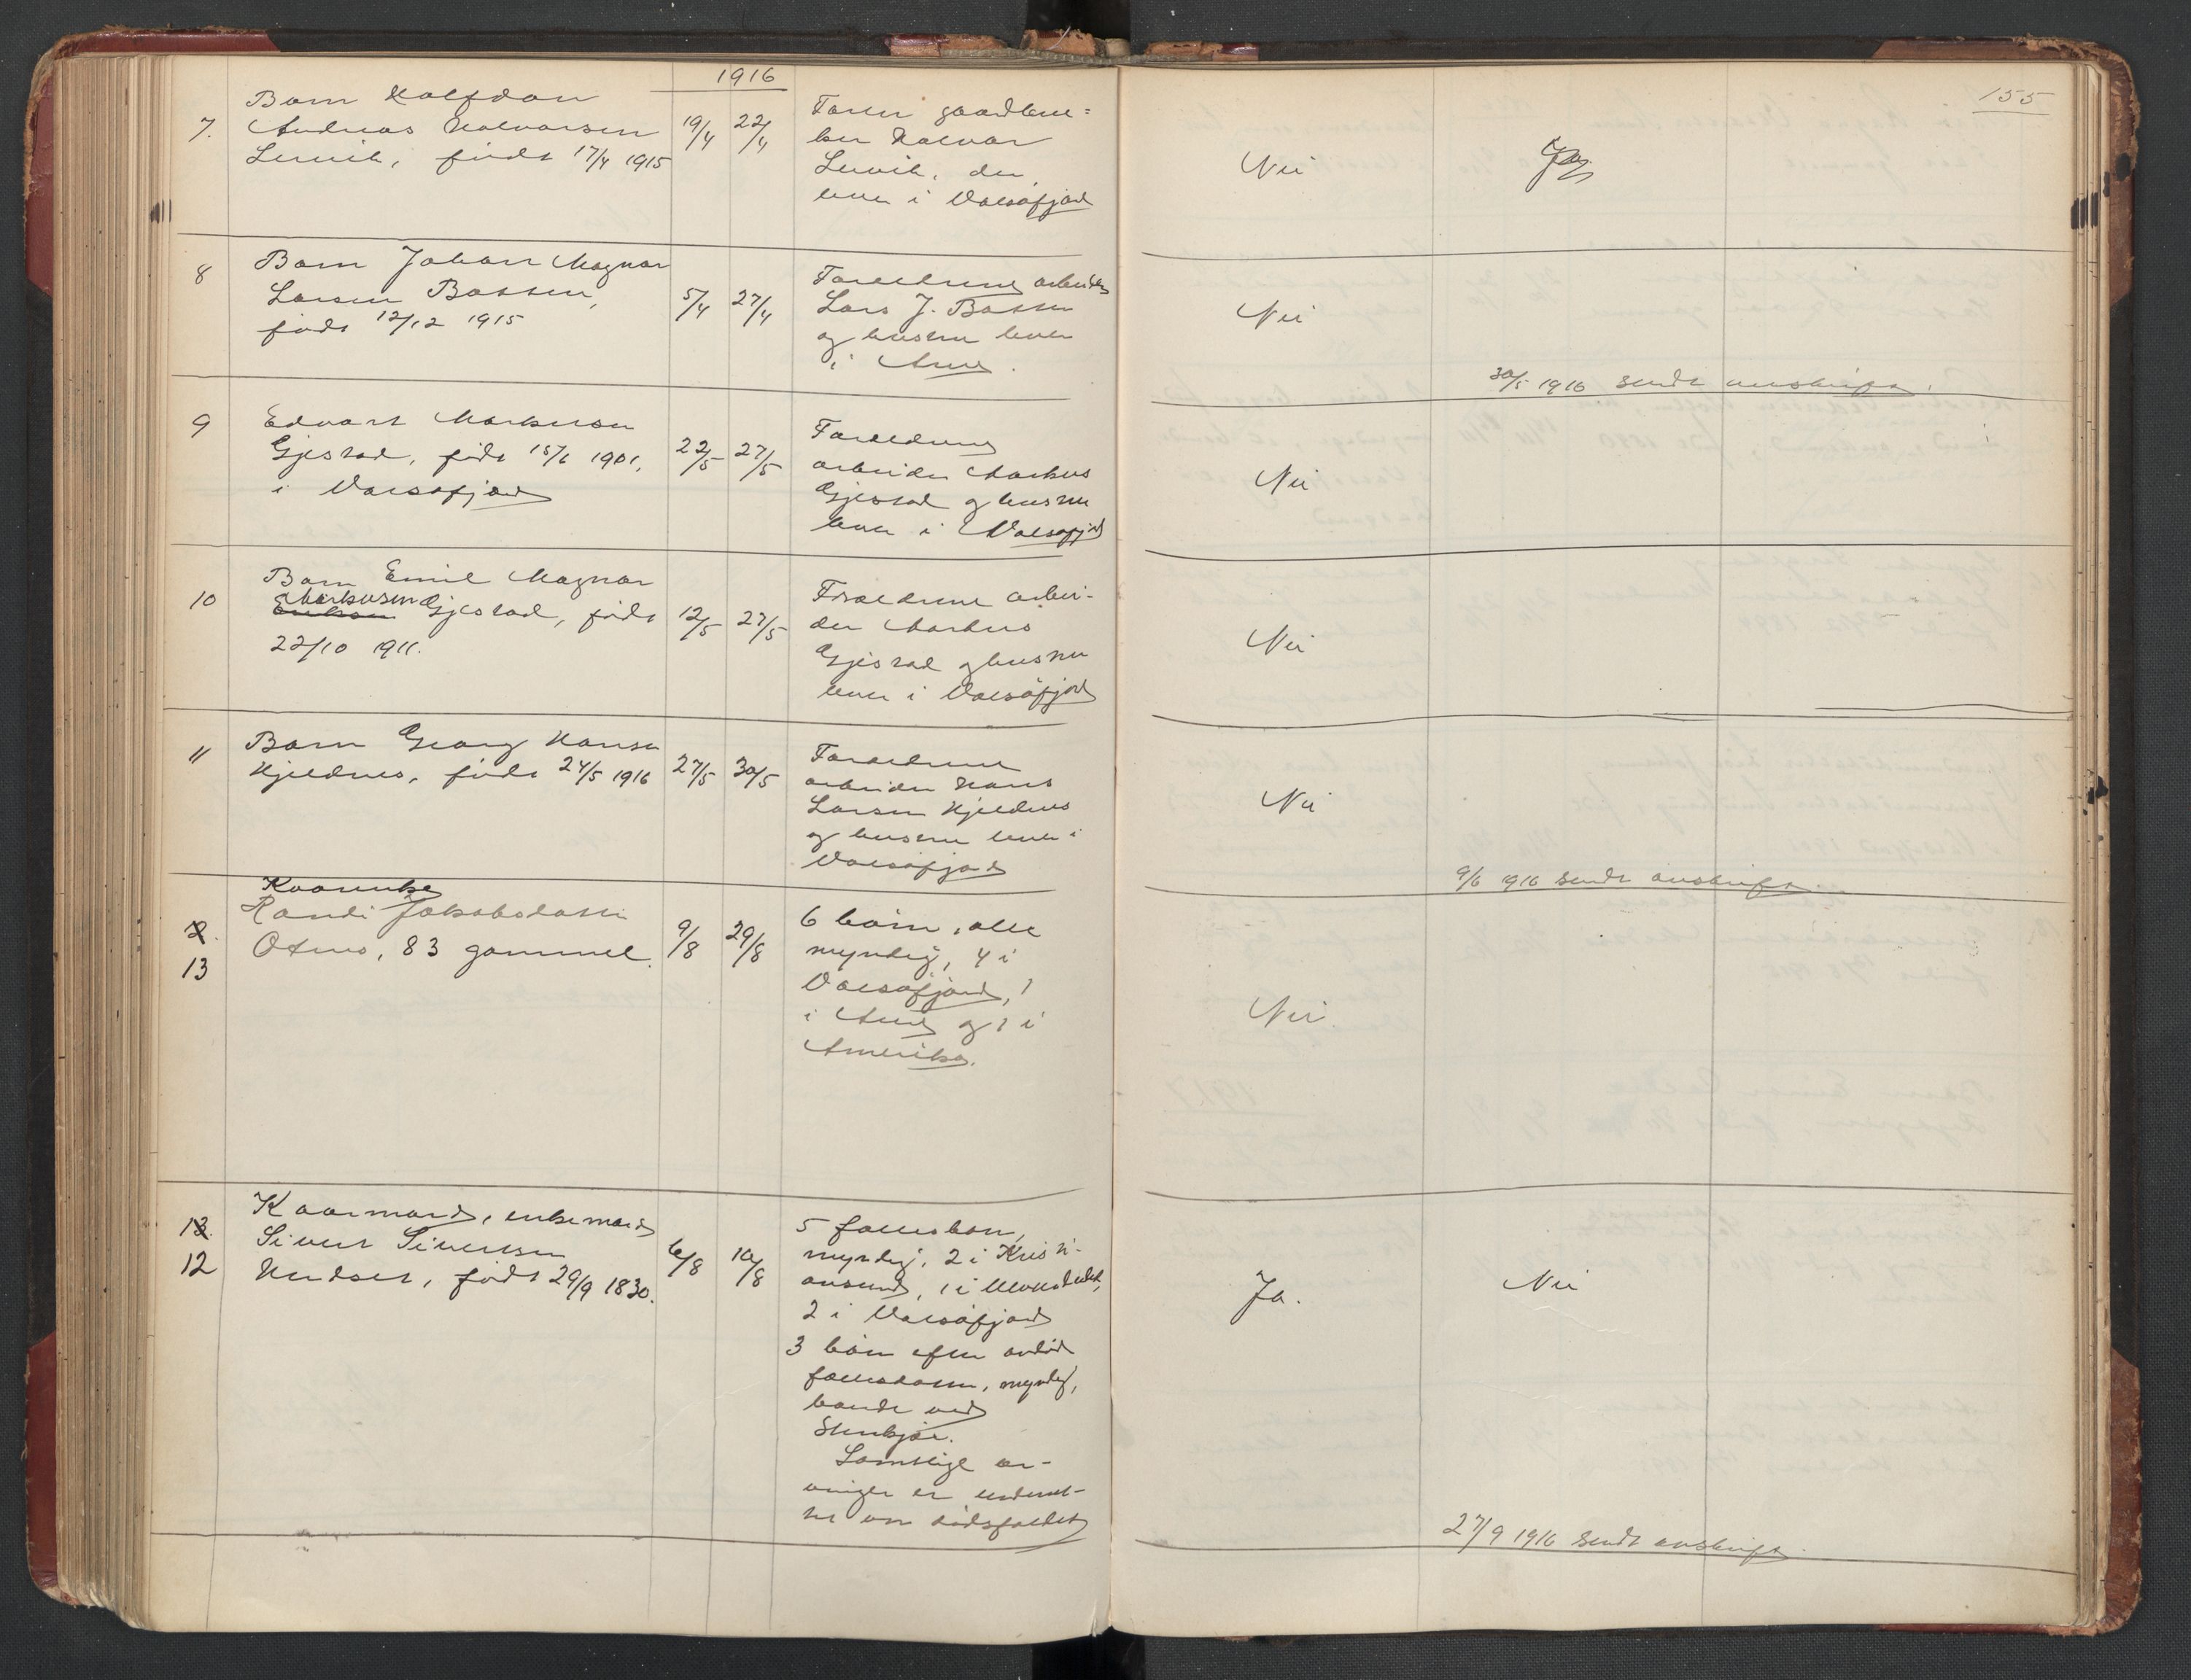 1916
155
7.
Barn Halfdan
Andreas Halvorsen
Lervik, födt 17/4 1915
19/4
22/4
Faren gaardbru=
ker Halvor
Lervik, der
lever i Valsöfjord
Nei
8
Barn Johan Magnar
Larsen Botten,
födt 12/12 1915
5/4
27/4
Forældrene arbeider
Lars J. Botten
og hustru lever
i Aure.
Nei
30/5 1916 sendt avskrift.
9
Edvart Markusen
Gjestad, födt 15/6 1901,
i Valsöfjord
22/5
27/5
Forældrene
arbeider Markus
Gjestad og hustru
lever i Valsöfjord
Nei
10
Barn Emil Magnar
Markusen
Gjestad, födt
22/10 1911.
12/5
27/5
Forældrene arbei-
der Markus
Gjestad og hustru
lever i Valsöfjord
Nei
11
Barn Georg Hansen
Hjeldnes, födt 24/5 1916
27/5
30/5
Forældrene
arbeider Hans
Larsen Hjeldnes
og hustru lever i
Valsöfjord
Nei
9/6 1916 sendt avskrift.
13
Kaarenke
Randi Jakobsdatter
Otnes, 83 gammel.
9/8
29/8
6 börn, alle
myndig, 4 i
Valsöfjord, 1
i Aure og 1 i
Amerika.
Nei
12
Kaarmand, enkemand
Sivert Sivertsen
födt 29/9 1830.
6/8
10/8
5 fællesbarn,
myndig, 2 i Kristi-
ansund, 1 i
2 i Valsöfjord
3 börn efter avdöd
fællesdatter, myndig,
boende ved
Stenkjær.
Samtlige ar-
vinger er underret-
tet om dödsfaldet
Ja.
Nei
27/9 1916 sendt avskrift.